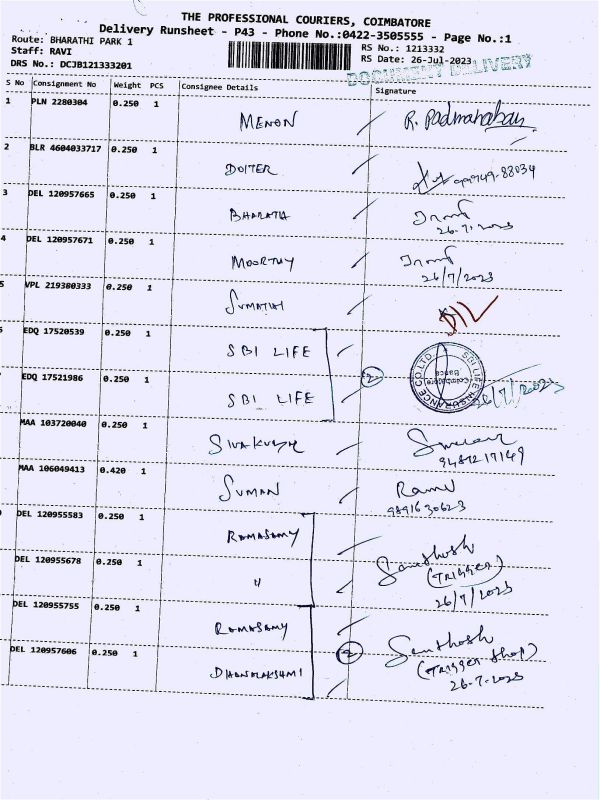 THE PROFESSIONAL COURIERS, COIMBATORE
Delivery Runsheet - P43 - Phone No.:0422-3505555 - Page No.:1
Route: BHARATHI PARK 1
RS No.: 1213332
Staff: RAVI
RS Date: 26-Jul-2023
DRS No.: DCJB121333201
DOCUMENT DELIVERY
S No Consignment No Weight PCS Consignee Details Signature
1 PLN 2280304 0.250 1 MENON R. Padmanaban
2 BLR 4604033717 0.250 1 DOITER 99949-88034
3 DEL 120957665 0.250 1 BHARATH
26.7.2023
4 DEL 120957671 0.250 1 MOORTHY
26/7/2023
5 VPL 219380333 0.250 1 SUMATHI
EDQ 17520539 0.250 1 SBI LIFE
SBI LIFE INSURANCE CO.LTD.
Coimbatore
EDQ 17521986 0.250 1 SBI LIFE 2 26/7/2023
MAA 103720040 0.250 1 SIVAKUMAR
9487217149
MAA 106049413 0.420 1 SUMAN Ramu
9891630623
DEL 120955583 0.250 1 RAMASAMY
DEL 120955678 0.250 1 " Santhosh
(TRIGGER)
26/7/2023
DEL 120955755 0.250 1 RAMASAMY
DEL 120957606 0.250 1 DHANALAKSHMI 2 Santhosh
(Trigger shop)
26-7-2023